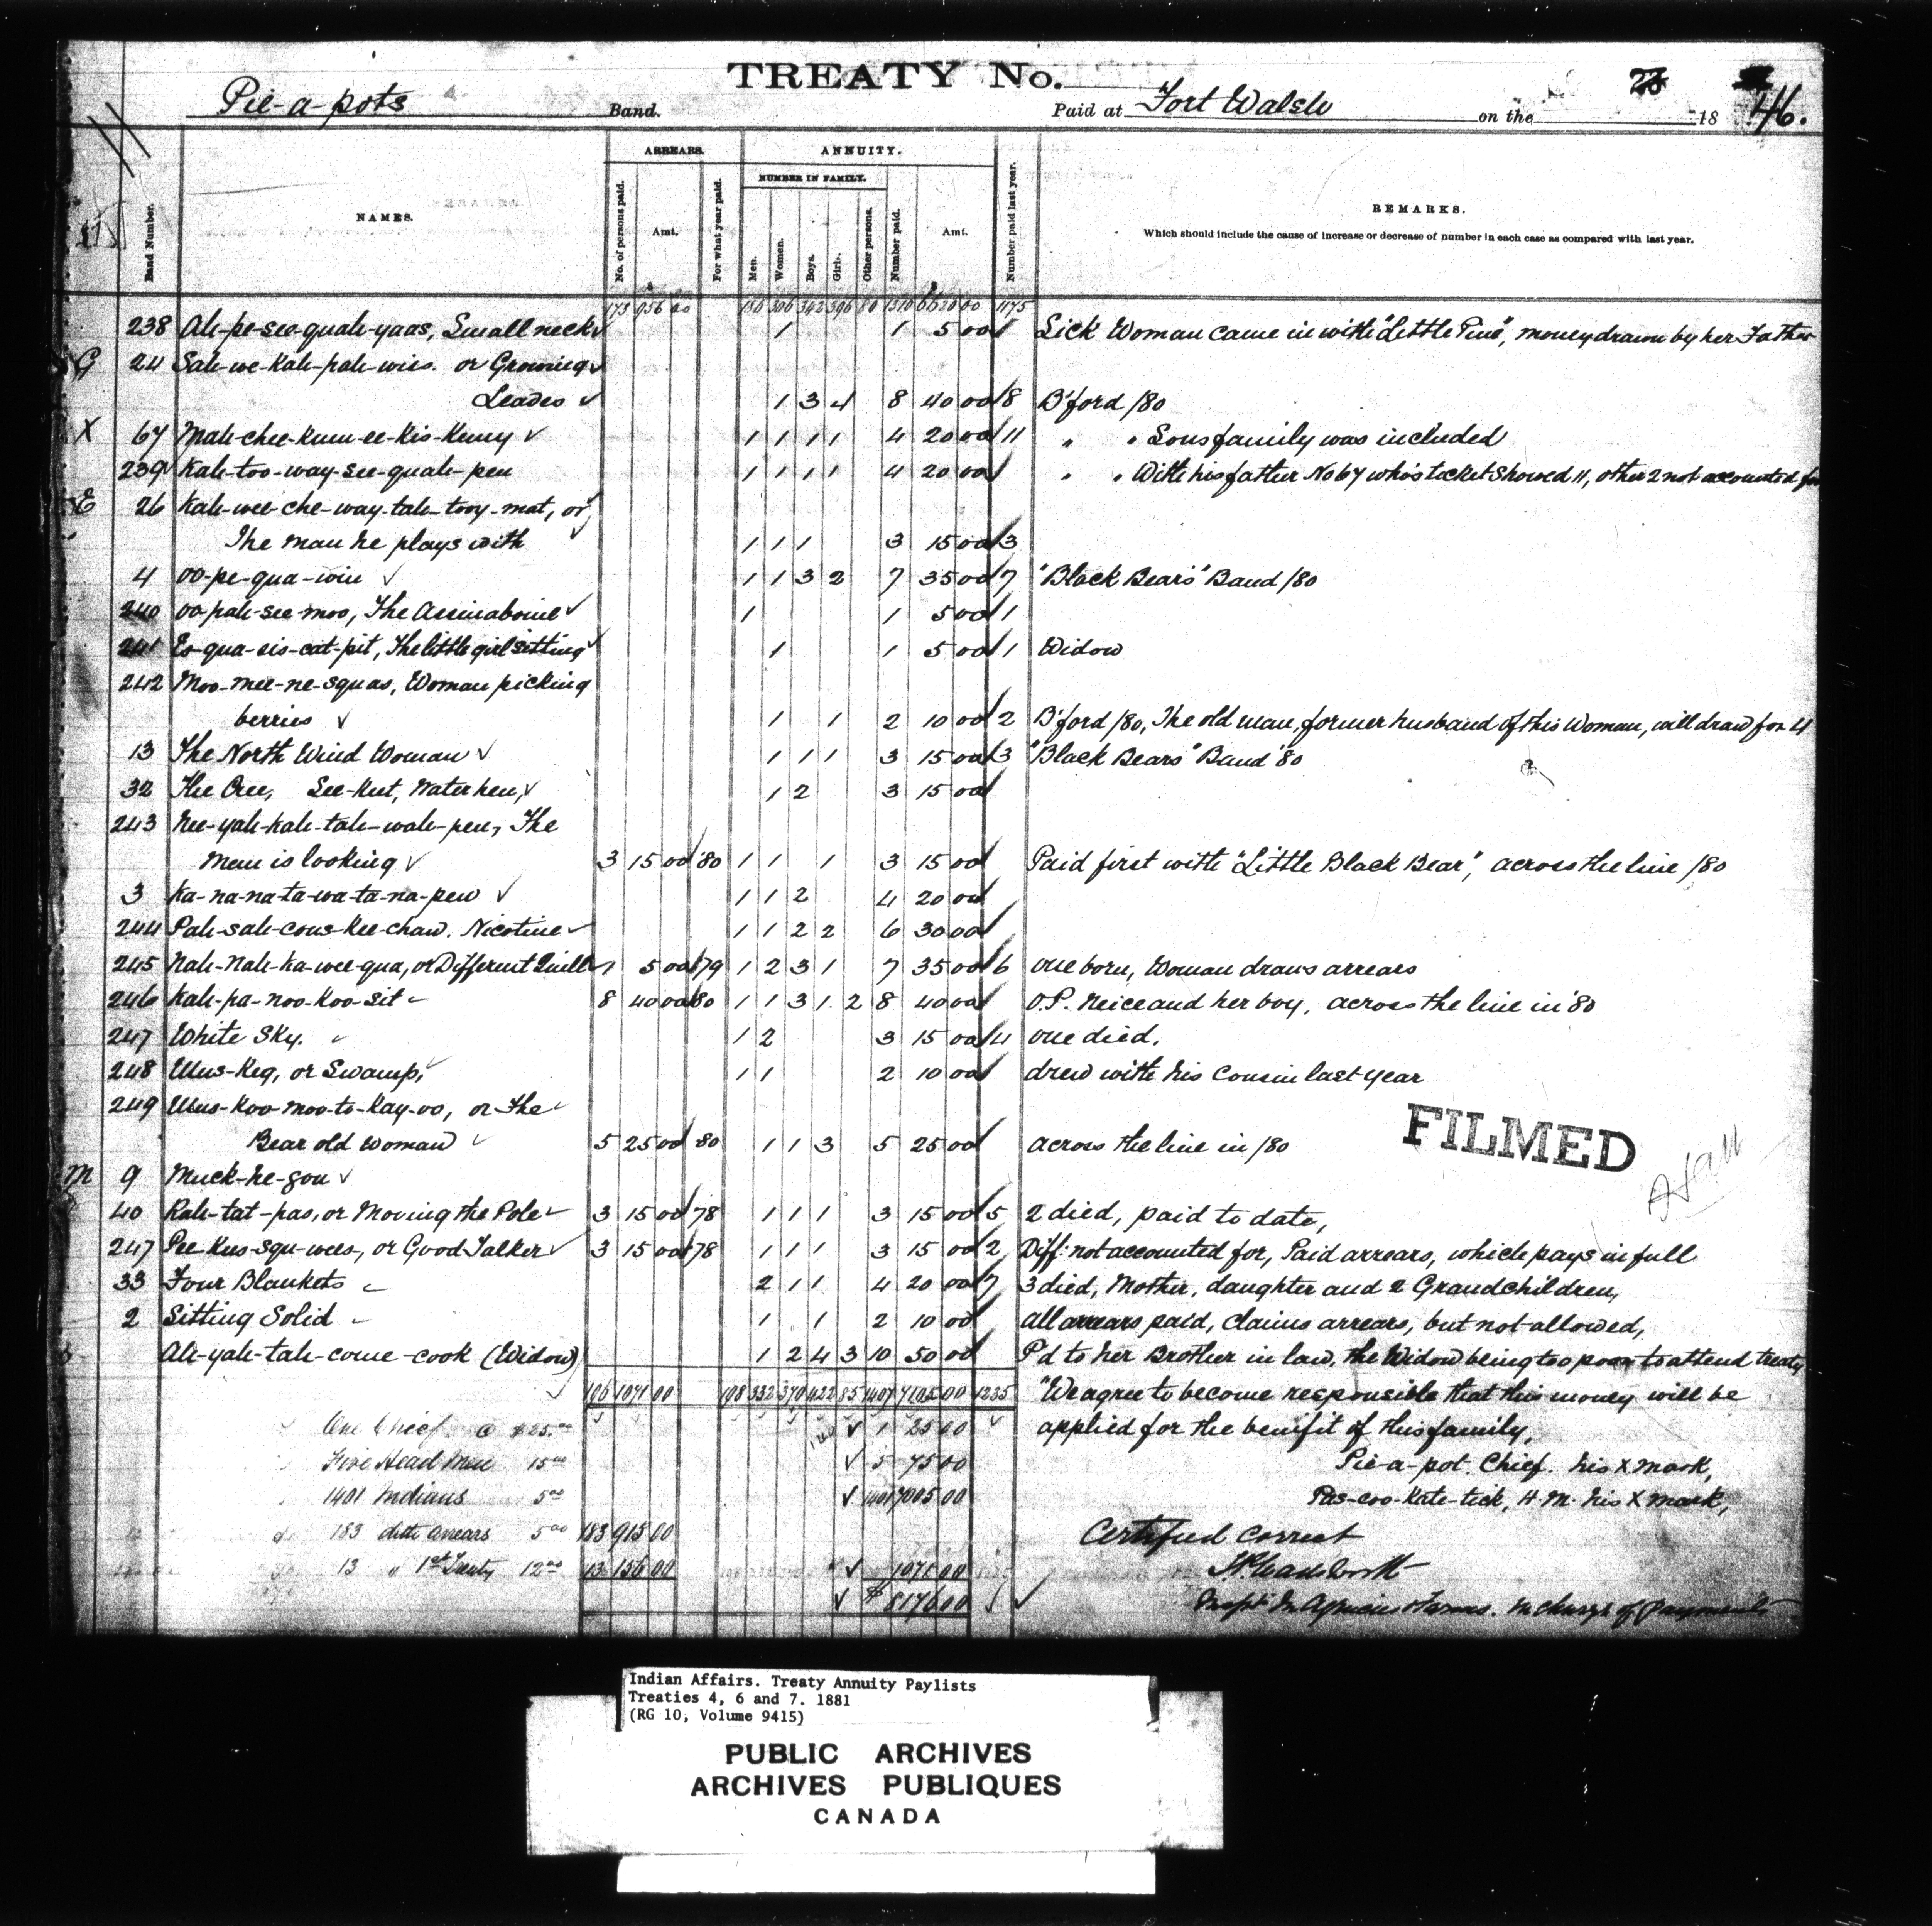 TREATY No.
Pie-a-pots Band. Paid at Fort Walsh on the 18 46.
ARREARS. ANNUITY.
NUMBER IN FAMILY.
Band Number. NAMES. No. of persons paid. Amt. For what year paid. Men. Women. Boys. Girls. Other persons. Number paid. Amt. Number paid last year. REMARKS.
Which should include the cause of increase or decrease of number in each case as compared with last year.
173 956 00 186 306 342 396 80 1310 6620 00 1175
238 Ah-pe-see-quah-yaas, Small neck 1 1 5 00 1 Sick Woman came in with "Little Pine", money drawn by her Father
G 24 Sah-we-kah-pah-wies. or Growing
Leaves 1 3 4 8 40 00 8 B'ford /80
X 67 Mah-chee-kum-ee-kis-kemy 1 1 1 1 4 20 00 11 " " Sons family was included
239 Kah-too-way-see-quah-pew 1 1 1 1 4 20 00 " " With his father No 67 who's ticket showed 11, other 2 not accounted for
E 26 Kah-wee-che-way-tah-tooy-mat, or
The man he plays with 1 1 1 3 15 00 3
4 oo-pe-qua-win 1 1 3 2 7 35 00 7 "Black Bear's" Band /80
240 oo-pah-see-moo, The Assinaboine 1 1 5 00 1
241 Es-qua-sis-cat-pit, The little girl sitting 1 1 5 00 1 Widow
242 Moo-mee-ne-squas, Woman picking
berries 1 1 2 10 00 2 B'ford /80, The old man, former husband of this Woman, will draw for 4
13 The North Wind Woman 1 1 1 3 15 00 3 "Black Bears" Band '80
32 The Cree, See-kut, Water hen, 1 2 3 15 00
243 Nee-yah-kah-tah-wah-pew, The
Man is looking 3 15 00 80 1 1 1 3 15 00 Paid first with "Little Black Bear", across the line /80
3 Ka-na-na-ta-wa-ta-na-pew 1 1 2 4 20 00
244 Pah-sah-cous-kee-chaw. Nicotine 1 1 2 2 6 30 00
245 Nah-Nah-ka-wee-qua, or Different Quill 1 5 00 79 1 2 3 1 7 35 00 6 one born, Woman draws arrears
246 Kah-pa-noo-koo-sit 8 40 00 80 1 1 3 1 2 8 40 00 O.P. Neice and her boy, across the line in '80
247 White Sky. 1 2 3 15 00 4 one died.
248 Mus-keg, or Swamp, 1 1 2 10 00 drew with his cousin last year
249 Mus-koo-moo-to-kay-oo, or The
Bear old woman 5 25 00 80 1 1 3 5 25 00 across the line in /80
FILMED
M 9 Muck-he-gou
40 Rah-tat-pas, or Moving the Pole 3 15 00 78 1 1 1 3 15 00 5 2 died, paid to date,
247 Pee-kus-squ-wees, or Good Talker 3 15 00 78 1 1 1 3 15 00 2 Diff: not accounted for, Paid arrears, which pays in full
33 Four Blankets 2 1 1 4 20 00 7 3 died, Mother, daughter and 2 Grandchildren,
2 Sitting Solid 1 1 2 10 00 all arrears paid, claims arrears, but not allowed,
Ah-yah-tah-come-cook (Widow) 1 2 4 3 10 50 00 P'd to her Brother in law, the Widow being too poor to attend treaty
196 1071 00 198 332 370 422 85 1407 7105 00 1235 "We agree to become responsible that this money will be
One Chief @ $25.00 1 25 00 applied for the benifit of this family,
Five Head Men 15 00 5 75 00 Pie-a-pot. Chief. his X mark,
1401 Indians 5 00 1401 7005 00 Pas-coo-kate-tick, H.M. his X mark,
183 ditto arrears 5 00 183 915 00 Certified Correct
13 " 1st Treaty 12 00 13 156 00 1071 00
$ 8176 00 in charge of Payments
Indian Affairs. Treaty Annuity Paylists
Treaties 4, 6 and 7. 1881
(RG 10, Volume 9415)
PUBLIC ARCHIVES
ARCHIVES PUBLIQUES
CANADA